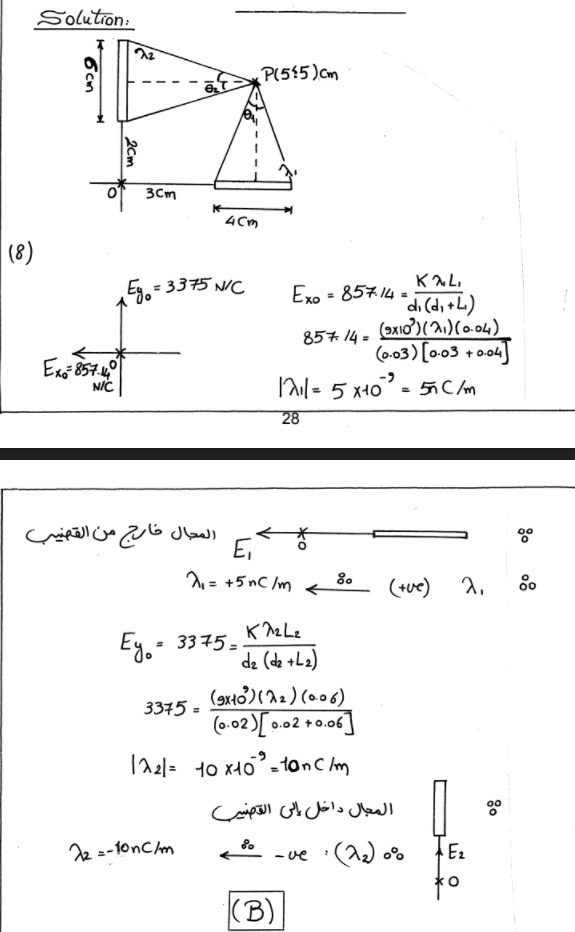 Solution:
λ2
6cm
θ2
P(5,5)cm
θ1
2cm
λ1
O
3cm
4cm
(8)
Ey₀ = 3375 N/C
O
Ex₀=857.14 N/C
Exo = 857.14 = Kλ1L1 / d1(d1+L1)
857.14 = (9x10⁹)(λ1)(0.04) / (0.03)[0.03 + 0.04]
|λ1| = 5 x10⁻⁹ = 5nC/m
28
المجال خارج من القضيب
E1
O
∵
λ1 = +5nC/m ← ∴ (+ve) λ1 ∴
Ey₀ = 3375 = Kλ2L2 / d2(d2+L2)
3375 = (9x10⁹)(λ2)(0.06) / (0.02)[0.02 + 0.06]
|λ2| = 10 x10⁻⁹ = 10nC/m
المجال داخل إلى القضيب ∵
λ2 = -10nC/m ← ∴ -ve : (λ2) ∴
E2
O
(B)